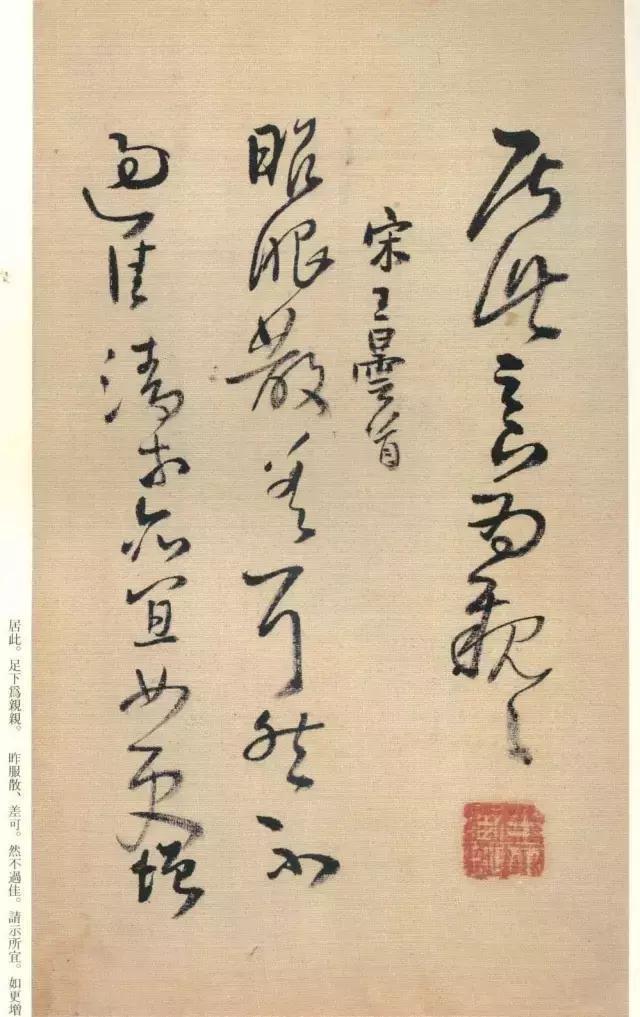 居此言为親々
宋王曇首
昨服散差可然不
過佳請示所宜如更增
居此。足下爲親親。　昨服散、差可。然不過佳。請示所宜。如更增